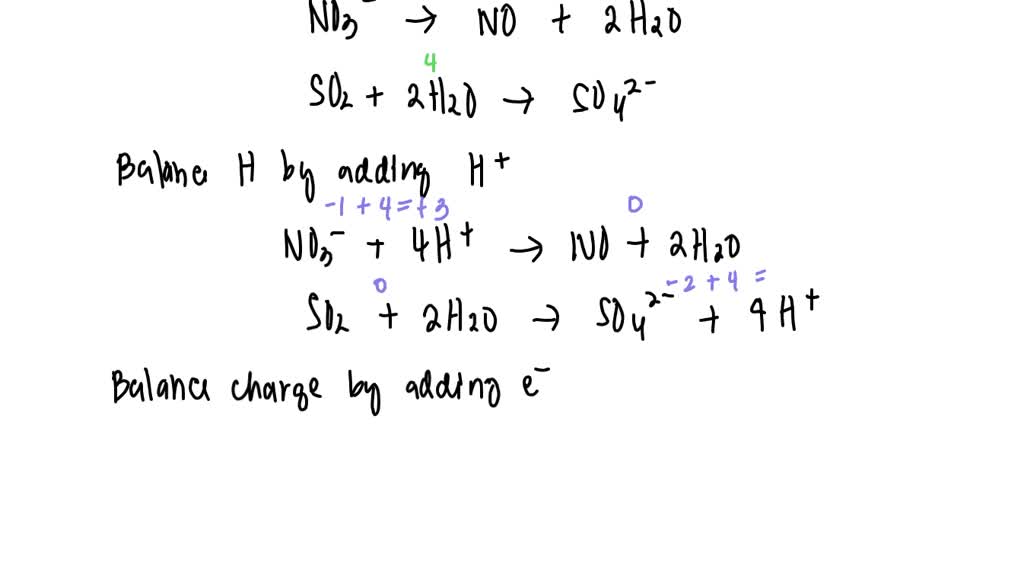 NO₃⁻ → NO + 2H₂O
4
SO₂ + 2H₂O → SO₄²⁻
Balance H by adding H⁺
-1 + 4 = +3 0
NO₃⁻ + 4H⁺ → NO + 2H₂O
0 -2 + 4 =
SO₂ + 2H₂O → SO₄²⁻ + 4H⁺
Balance charge by adding e⁻